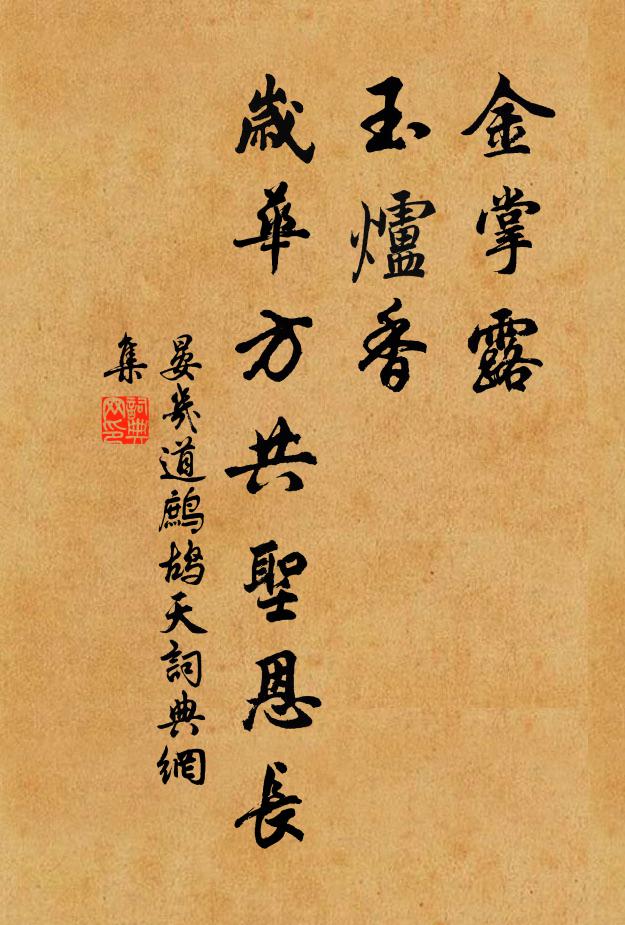 金掌露
玉爐香
歲華方共聖恩長
晏幾道鷓鴣天詞典網
集
詞典
网印